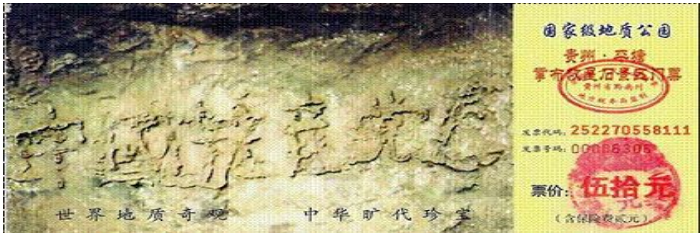 中国共产党
世界地质奇观 中华旷代珍宝
国家级地质公园
贵州·平塘
掌布藏字石景区门票
贵州省黔南州
发票代码:252270558111
发票号码:00006305
票价:伍拾元
(含保险费贰元)